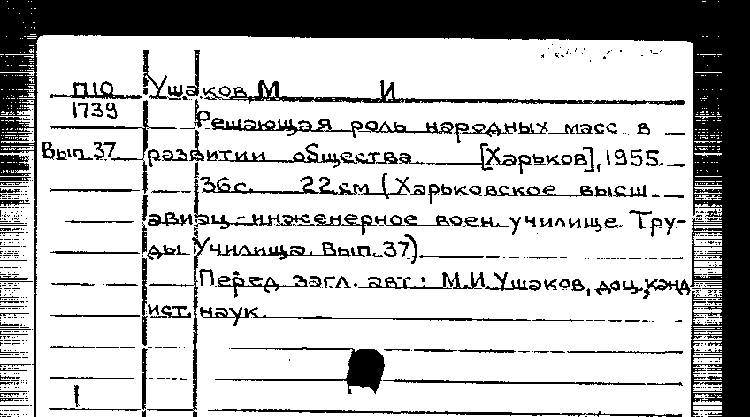 П10 Ушаков, М И
1739 Решающая роль народных масс в
Вып. 37 развитии общества [Харьков], 1955.
36с. 22см (Харьковское высш.
авиац-инженерное воен. училище. Тру-
ды Училища. Вып. 37).
Перед загл. авт: М.И. Ушаков, доц., канд.
ист. наук.
1